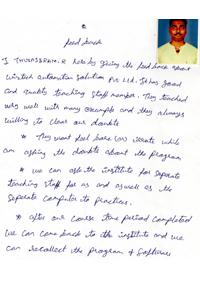 Feed back
I THULASIRAM.R hereby giving the feed back about
wintech automation solution Pvt Ltd. It has good
and quality teaching staff member. They teached
very well with many examples and they always
willing to clear our doubts
* They wont feel bore (or) irritate while
am asking the doubts about the program
* we can ask the institute for seperate
teaching staff for us and as well as the
Seperate computer to practices.
* after our course time period completed
we can come back to the institute and we
can recollect the program & softwares